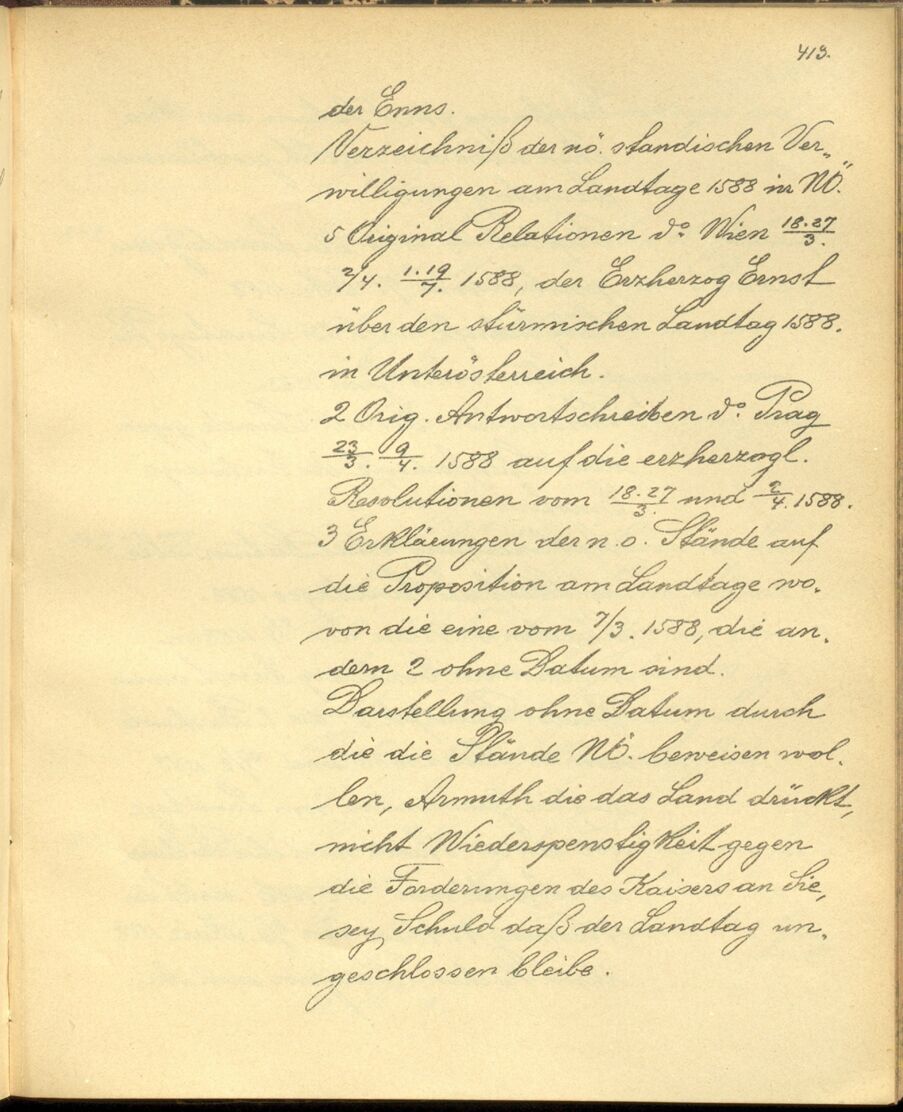 413.
der Enns.
Verzeichniß der nö. standischen Ver-
willigungen am Landtage 1588 in NÖ.
5 Original Relationen do. Wien 18.27/3.
2/4. 1.19/7. 1588, der Erzherzog Ernst
über den stürmischen Landtag 1588.
in Unterösterreich.
2 Orig. Antwortschreiben do. Prag
23/3. 9/4. 1588 auf die erzherzogl.
Resolutionen vom 18.27/3. und 2/4. 1588.
3 Erkläerungen der n.o. Stände auf
die Proposition am Landtage wo-
von die eine vom 7/3. 1588, die an-
dern 2 ohne Datum sind.
Darstellung ohne Datum durch
die die Stände NÖ. beweisen wol-
len, Armuth die das Land drückt,
nicht Wiederspenstigkeit gegen
die Forderungen des Kaisers an Sie,
sey Schuld daß der Landtag un-
geschlossen bleibe.